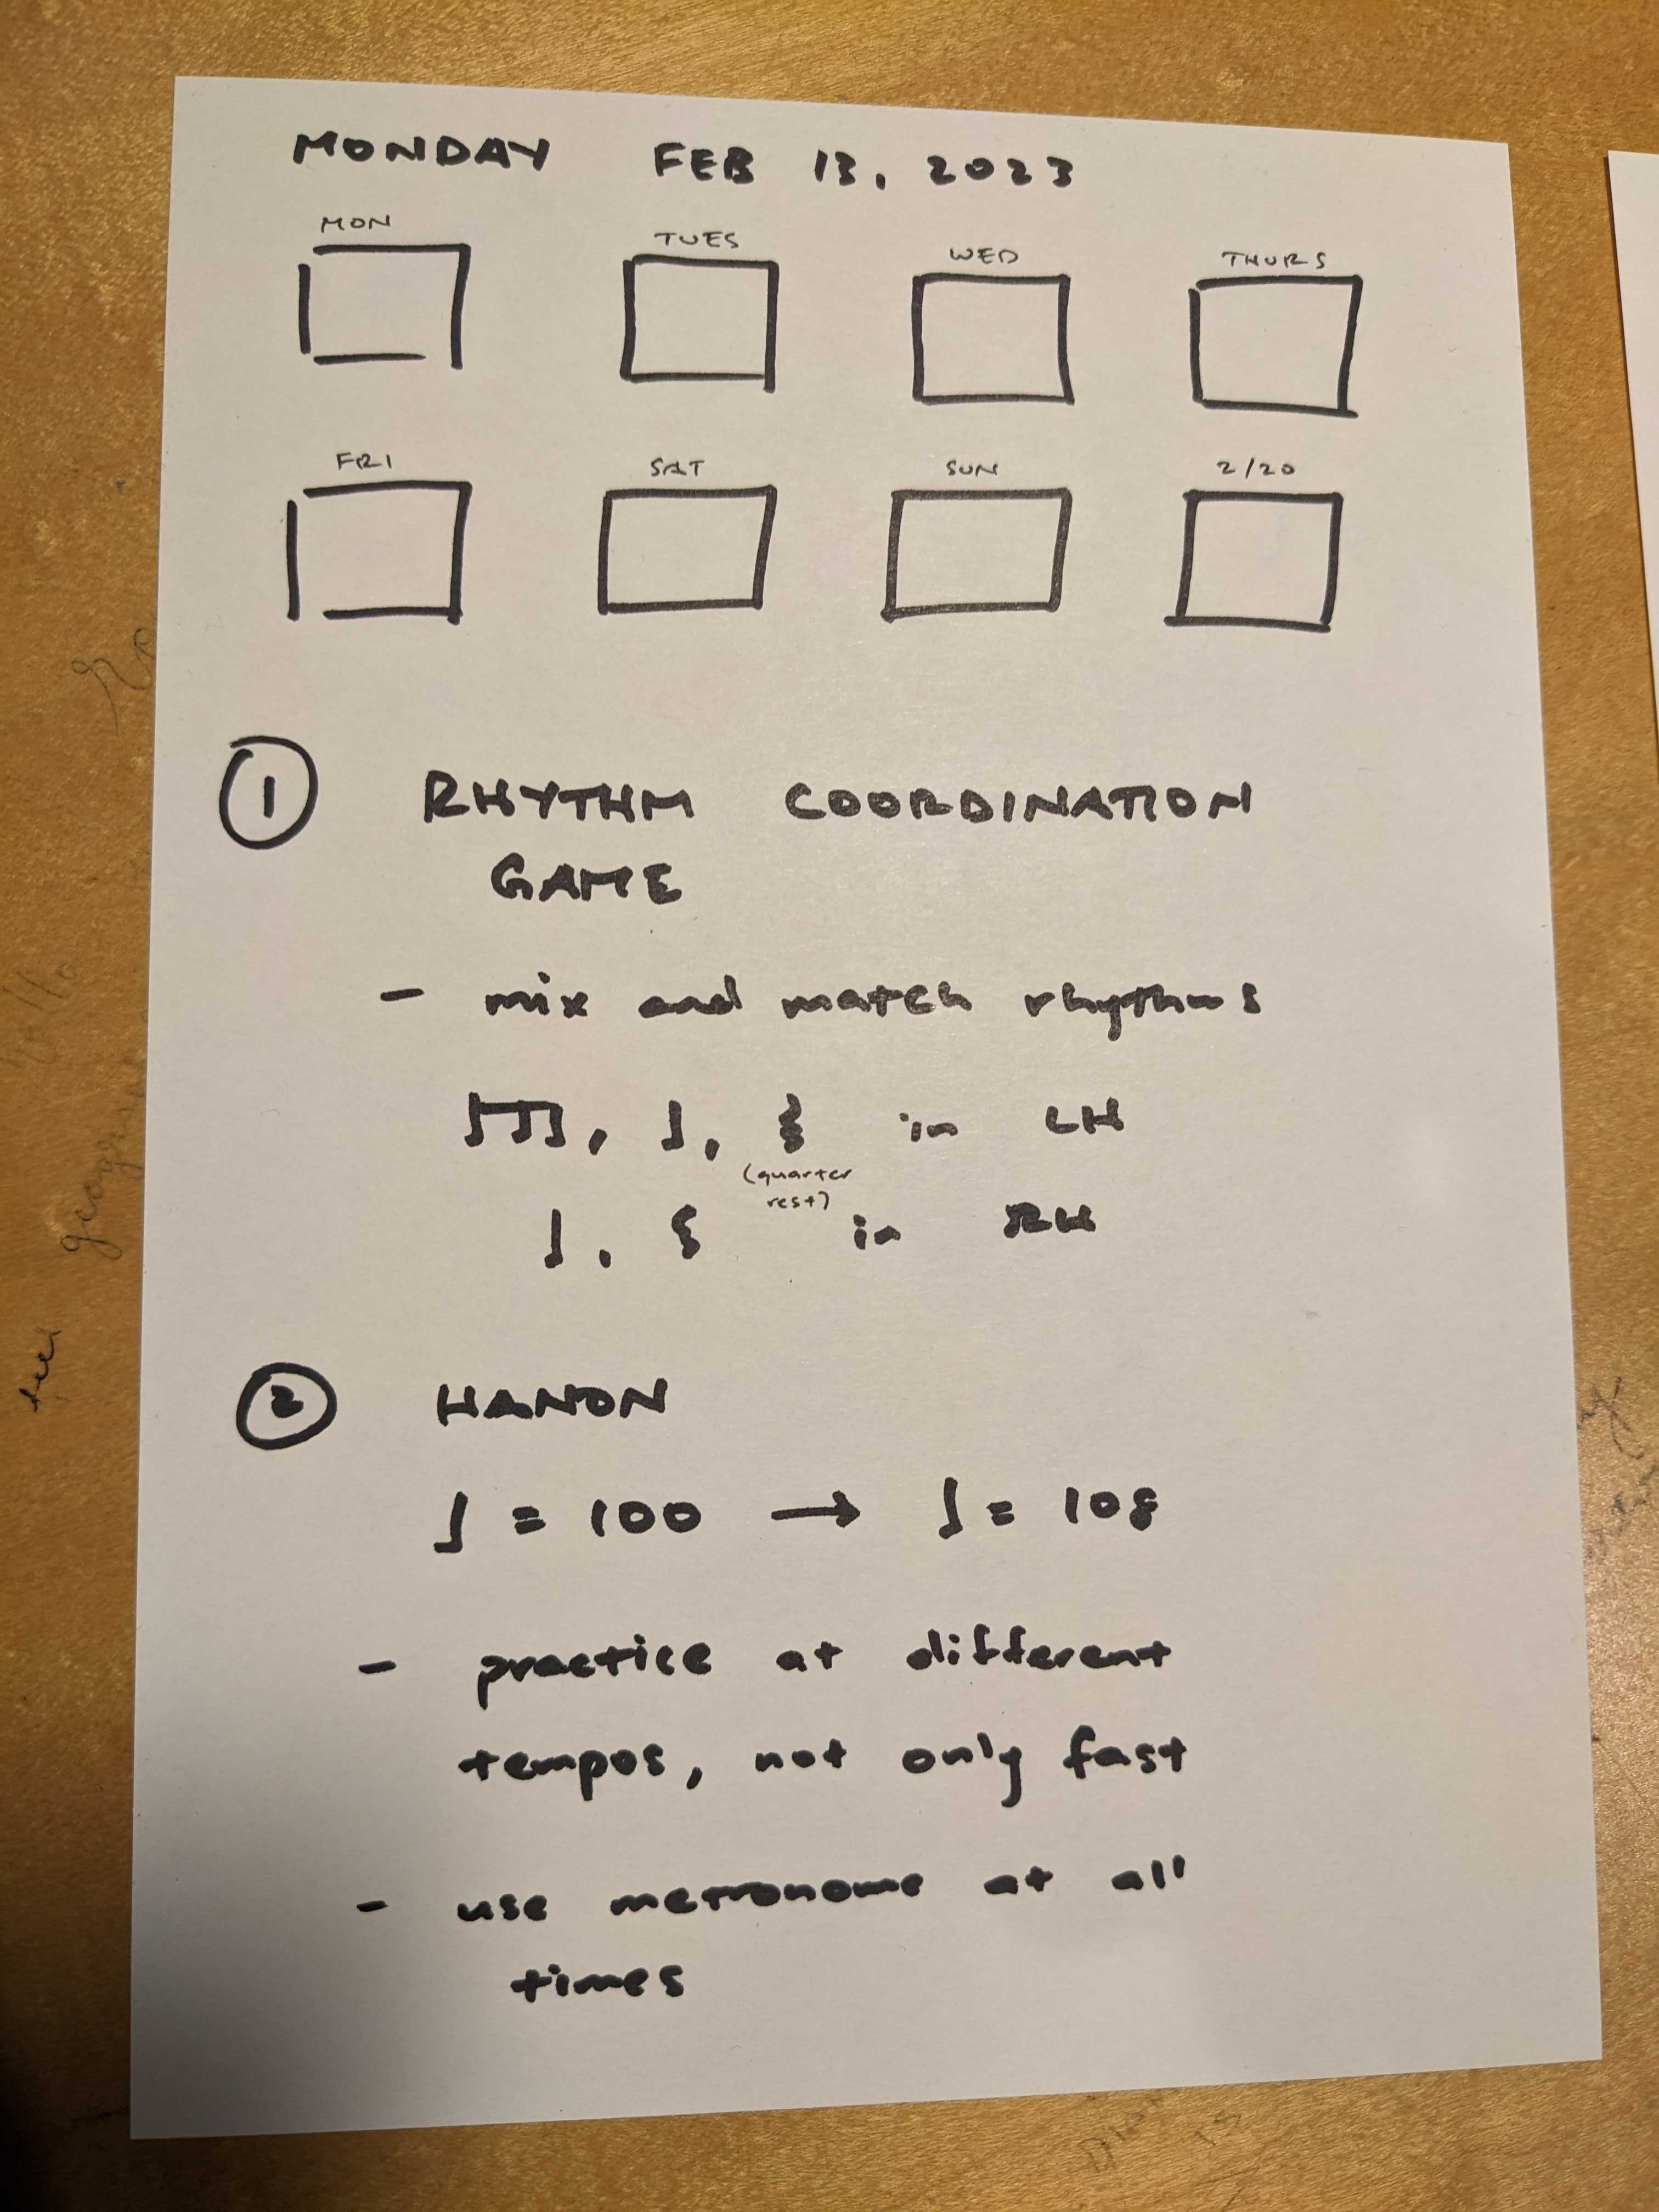 MONDAY FEB 13, 2023
MON TUES WED THURS
FRI SAT SUN 2/20
① RHYTHM COORDINATION
GAME
- mix and match rhythms
♫♩, ♩, 𝄽 in LH
(quarter
rest)
♩, 𝄽 in RH
② HANON
♩ = 100 → ♩ = 108
- practice at different
tempos, not only fast
- use metronome at all
times